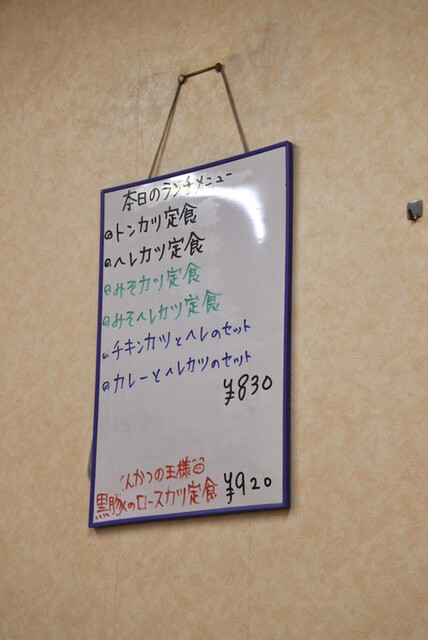 本日のランチメニュー
トンカツ定食
ヘレカツ定食
みそカツ定食
みそヘレカツ定食
チキンカツとヘレのセット
カレーとヘレカツのセット
¥830
とんかつの王様
黒豚のロースカツ定食 ¥920